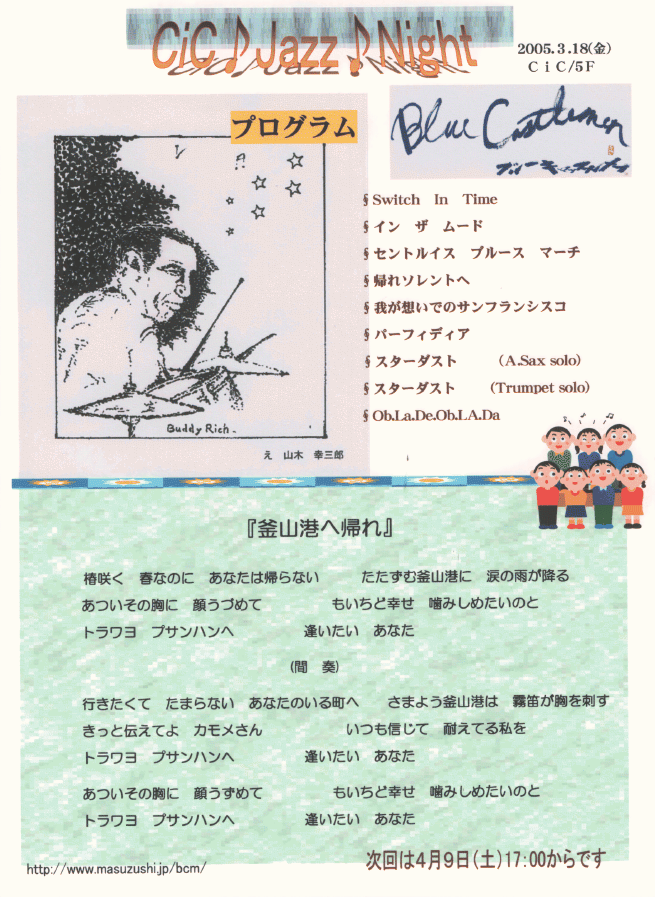 CiC♪Jazz♪Night
2005.3.18(金)
CiC/5F
プログラム
Blue Castlemen
§ Switch In Time
§ イン ザ ムード
§ セントルイス ブルース マーチ
§ 帰れソレントへ
§ 我が想いでのサンフランシスコ
§ パーフィディア
§ スターダスト (A.Sax solo)
§ スターダスト (Trumpet solo)
§ Ob.La.De.Ob.LA.Da
Buddy Rich.
え 山木 幸三郎
『釜山港へ帰れ』
椿咲く 春なのに あなたは帰らない たたずむ釜山港に 涙の雨が降る
あついその胸に 顔うづめて もいちど幸せ 噛みしめたいのと
トラワヨ プサンハンへ 逢いたい あなた
(間 奏)
行きたくて たまらない あなたのいる町へ さまよう釜山港は 霧笛が胸を刺す
きっと伝えてよ カモメさん いつも信じて 耐えてる私を
トラワヨ プサンハンへ 逢いたい あなた
あついその胸に 顔うずめて もいちど幸せ 噛みしめたいのと
トラワヨ プサンハンへ 逢いたい あなた
http://www.masuzushi.jp/bcm/
次回は4月9日(土)17:00からです